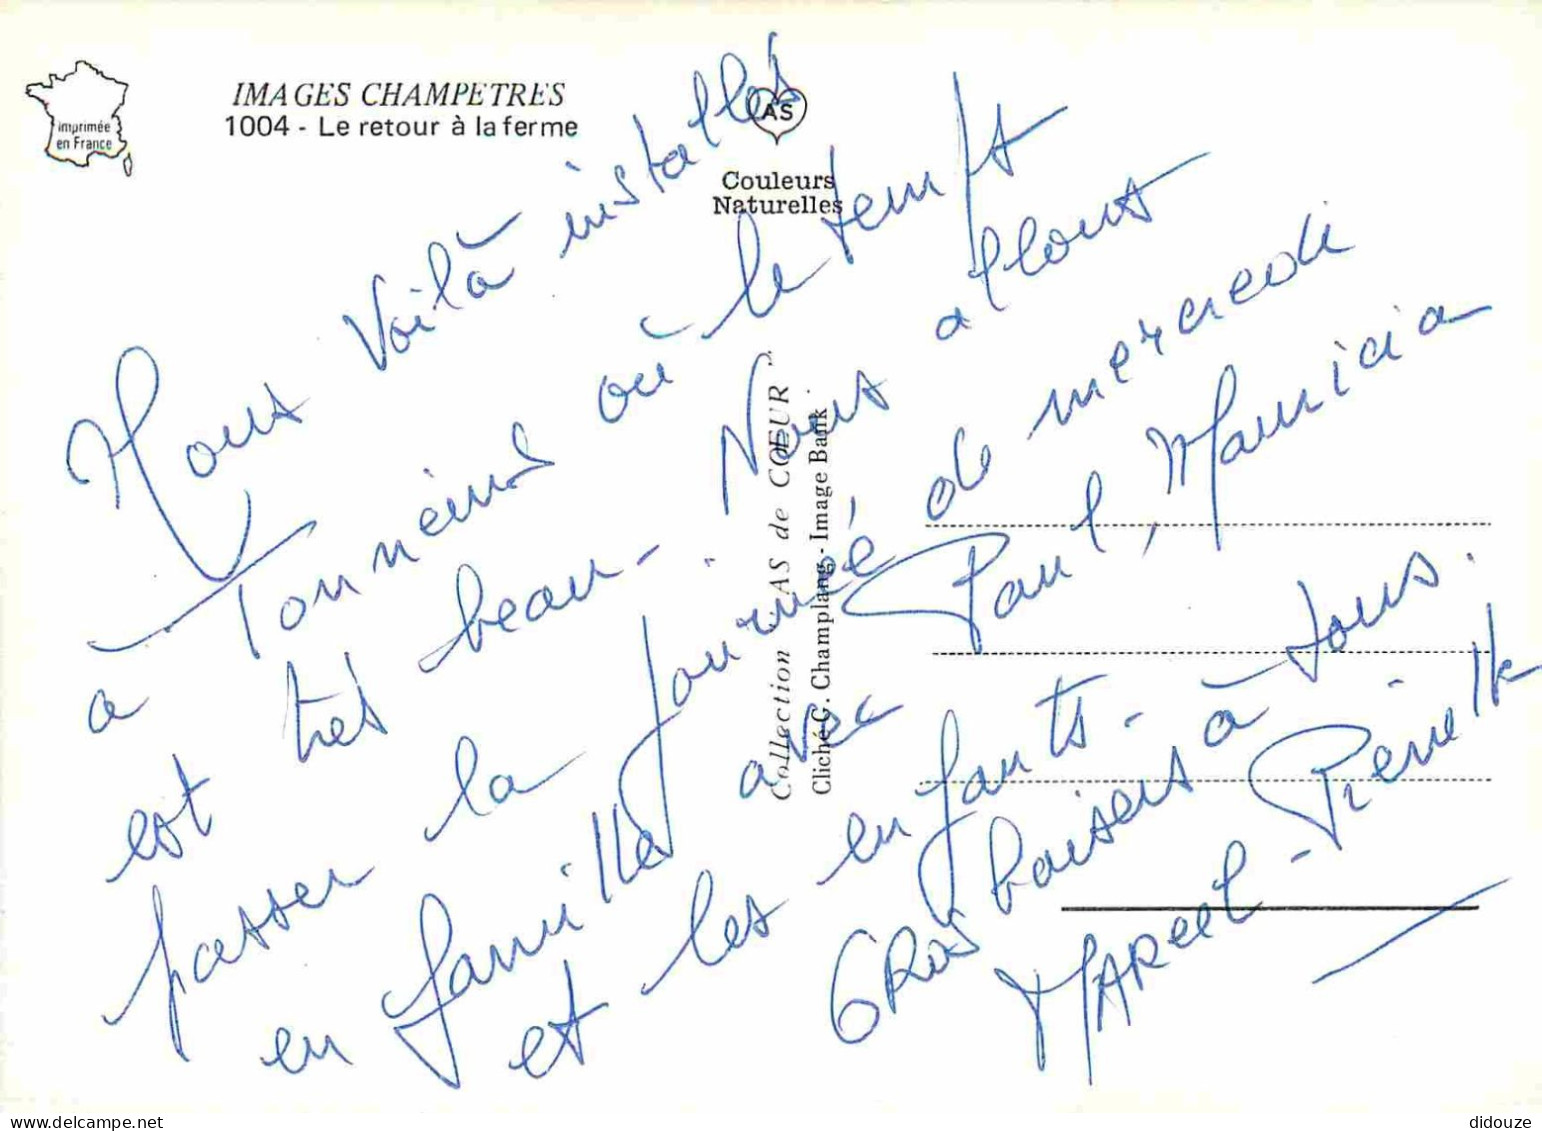 imprimée
en France
IMAGES CHAMPETRES
1004 - Le retour à la ferme
AS
Couleurs
Naturelles
Collection "AS de CŒUR"
Cliché G. Champlang - Image Bank
Nous voilà installés
à Tonneins où le temps
a
est très beau - Nous allons
passer la journée de mercredi
en famille avec Paul, Mauricia
et les enfants -
GROS baisers à tous.
MARCEL - Pierrette
didouze